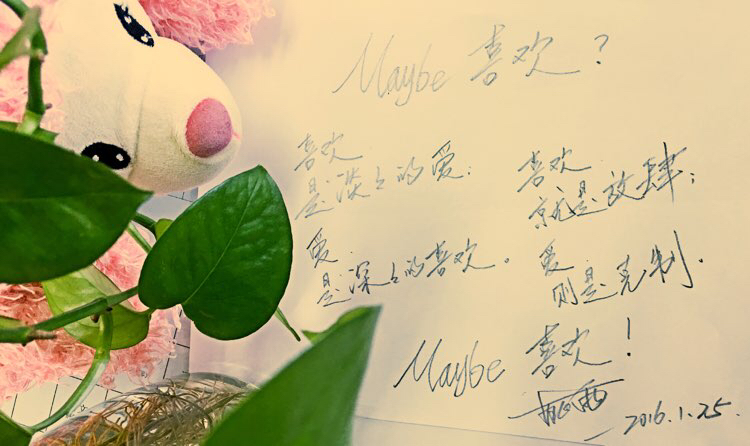 Maybe 喜欢?
喜欢
是淡々的爱;
爱
是深々的喜欢。
喜欢
就是放肆;
爱
则是克制.
Maybe 喜欢!
2016.1.25.